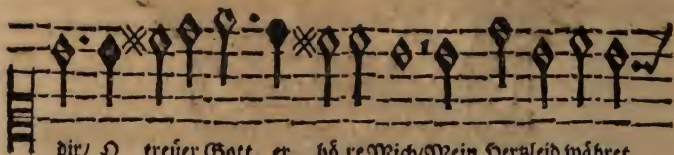 dir/ O treüer Gott er hö re Mich/Mein Hertzleid währet